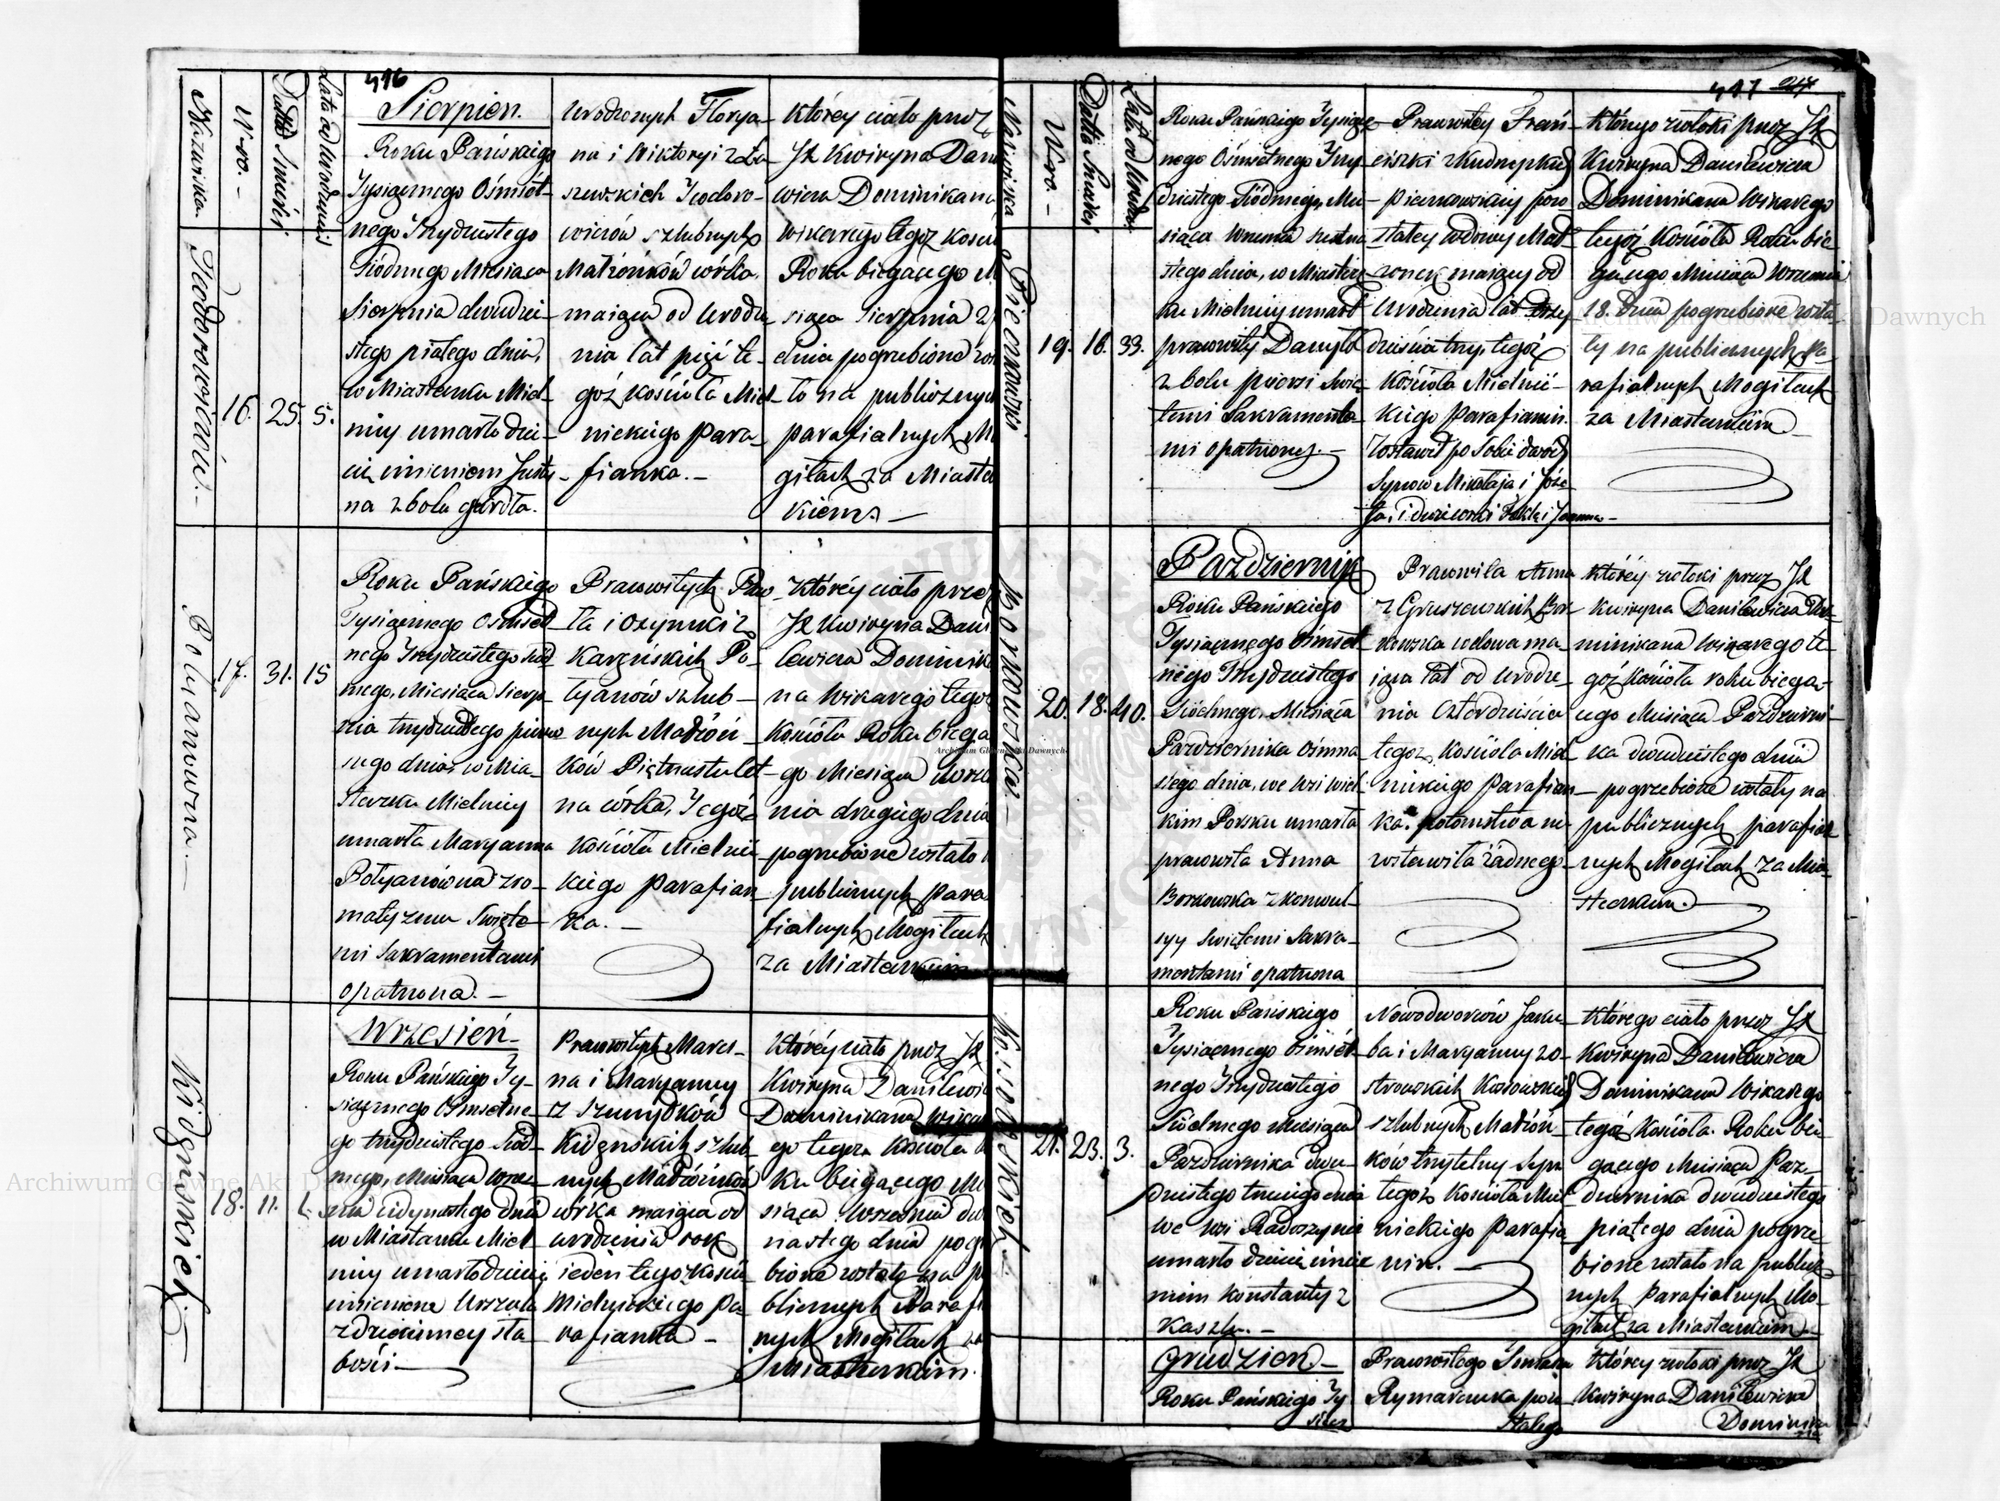 416
Nazwiska
Nro. -
Datta Śmierci
Lata od Urodzenia
Sierpień.
Roku Pańskiego
Tysiącznego Ośmset-
nego Trzydziestego
Siódmego Miesiąca
Sierpnia dwudzie-
stego piątego dnia,
w Miasteczku Miel-
nicy umarło dzie-
cie imieniem Justy-
na z bolu gardła.
Urodzonych Florya-
na i Wiktoryi z Ła-
szewskich Teodoro-
wiczów szlubnych
Małżonków córka
maiąca od Urodze-
nia lat pięć te-
goż kościoła Miel-
nickiego Para-
fianka. -
którey ciało przez
JX Kwiryna Dani
wicza Dominikana
Wikarego tegoż Kościo
Roku biegącego M
siąca Sierpnia 2
dnia pogrzebione zos
to na publicznych
parafialnych Mo
giłach za Miastecz
kiem. -
Teodorowiczówna -
16. 25. 5.
Roku Pańskiego
Tysiącznego Ośmset
nego Trzydziestego Siód
mego, Miesiąca Sierp
nia trzydziestego pierw
szego dnia w Mia-
steczku Mielnicy
umarła Maryanna
Połyanówna z ro-
matyzmu Święte-
mi Sakramentami
opatrzona. -
Pracowitych Paw-
ła i
Po-
lyanów szlub-
nych Małżon-
ków Piętnastolet-
na córka, Tegoż
Kościoła Mielnic-
kiego Parafian-
ka. -
którey ciało przez
JX Kwiryna Dani
lewicza Dominika
na Wikarego tegoż
Kościoła Roku biega
go Miesiąca Wrze
nia drugiego dnia
pogrzebione zostało
publicznych para
fialnych Mogiłach
za Miasteczkiem
17. 31. 15
Wrzesień -
Roku Pańskiego Ty-
siącznego Ośmsetne-
go trzydziestego Siód-
mego, Miesiąca Wrze-
śnia iedynastego dnia
w Miasteczku Miel-
nicy umarło dziecie
imieniem Urszula
z dziecinney sła-
bości -
Pracowitych Marci-
na i Maryanny
z
szlub-
nych Małżonków
córka maiąca od
urodzenia rok
ieden tegoż kościo
Mielnickiego Pa-
rafianka -
Którey ciało przez JX
Kwiryna Danilewi
Dominikana Wikar
ego tegoż Kościoła
ku biegącego Mie
siąca Września dwu
nastego dnia pogrze
bione zostało na pu
blicznych Parafi
nych Mogiłach za
Miasteczkiem.
18. 11. 1.
417
Nazwiska
Nro. -
Datta Śmierci
Lata od Urodze.
Roku Pańskiego Tysiącz-
nego Ośmsetnego Trzy
dziestego Siódmego, Mie-
siąca Września szesna
stego dnia, w Miastecz
ku Mielnicy umarł
pracowity Danyło
z bolu piersi Świę-
temi Sakramenta-
mi opatrzony. -
Pracowitey Fran-
ciszki
pozo
stałey wdowy Mał
żonek maiący od
Urodzenia lat trzy
dzieścia trzy, tegoż
Kościoła Mielnic-
kiego Parafianin.
Zostawił po Sobie dwóch
Synów Mikołaja i Józe-
fa, i dwie córki Teklę i Joannę -
Którego zwłoki przez JX
Kwiryna Danilewicza
Dominikana Wikarego
tegoż Kościoła Roku bie
gącego Miesiąca Września
18. dnia pogrzebione zosta-
ły na publicznych Pa-
rafialnych Mogiłach
za Miasteczkiem -
19. 16. 33.
Październik
Roku Pańskiego
Tysiącznego Ośmset
nego Trzydziestego
Siódmego, Miesiąca
Października Ośmna
stego dnia, we wsi Wiel
kim Porsku umarła
pracowita Anna
Borkowska z konwul-
syy Świętemi Sakra-
mentami opatrzona
Pracowita Anna
z Gruszewskich Bor
kowska wdowa ma-
iąca lat od Urodze-
nia czterdzieścia
tegoż Kościoła Miel
nickiego Parafian-
ka. potomstwa nie
zostawiła żadnego
którey zwłoki przez JX
Kwiryna Danilewicza Do-
minikana Wikarego te-
goż Kościoła roku biegą-
cego Miesiąca Październi-
ka dwudziestego dnia
pogrzebione zostały na
publicznych parafial
nych Mogiłach za Mia-
steczkiem. -
Borkowska -
20. 18. 40.
Roku Pańskiego
Tysiącznego Ośmset-
nego Trzydziestego
Siódmego Miesiąca
Października dwu-
dziestego trzeciego dnia
we wsi Radoszynie
umarło dziecie imie
niem Konstanty z
kaszlu. -
Nowodworców Jaku-
ba i Maryanny z O-
strowskich Kosowskich
szlubnych Małżon-
ków trzyletny Syn
tegoż Kościoła Miel
nickiego Parafia-
nin. -
którego ciało przez JX
Kwiryna Danilewicza
Dominikana Wikarego
tegoż Kościoła. Roku bie-
gącego Miesiąca Paź-
dziernika dwudziestego
piątego dnia pogrze-
bione zostało na publicz
nych Parafialnych Mo-
giłach za Miasteczkiem -
21. 23. 3.
Grudzień -
Roku Pańskiego Ty
siącz
Pracowitego
Rymarczuka pozo
stałego
którey zwłoki przez JX
Kwiryna Danilewicza
Dominika
Archiwum Główne Akt Dawnych
Archiwum Główne Akt Dawnych
Archiwum Główne Akt Dawnych